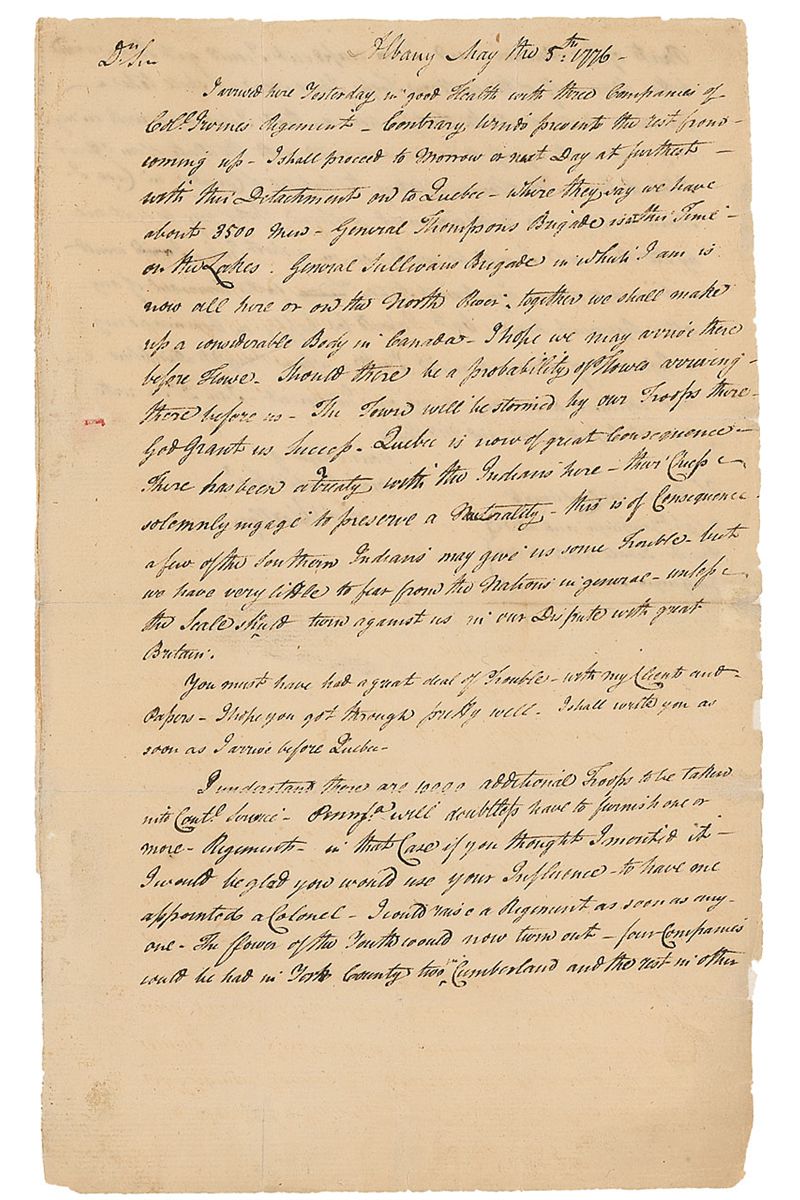 Dr Sir Albany May the 5th 1776 -
I arrived here Yesterday in good Health with three Companies of
Coll. Irwines Regement - Contrary Winds prevents the rest from -
coming up - I shall proceed to Morrow or next Day at furthest -
with this Detachment on to Quebec - where they say we have
about 3500 Men - General Thompsons Brigade is at this Time -
on the Lakes. General Sullivans Brigade in which I am is
now all here or on the North River, together we shall make
up a considerable Body in Canada - I hope we may arrive there
before Howe - Should there be a probability of Howes arriving -
there before us - The Town will be stormed by our Troops there -
God Grant us Success - Quebec is now of great Consequence -
There has been a Treaty with the Indians here - their Chiefs
solemnly ingage to preserve a Nutorality - this is of Consequence -
a few of the Southern Indians may give us some Trouble - but
we have very little to fear from the Nations in general - unless
the Scale should turn against us in our Dispute with great
Britain.
You must have had a great deal of Trouble - with my Client and -
Papers - I hope you got through pretty well - I shall write you as
soon as I arrive before Quebec -
I understand there are 10000 additional Troops to be taken
into Contl. Service - Pennsa. will doubtless have to furnish one or
more - Regement - in that Case if you thought I merited it -
I would be glad you would use your Influence - to have me
appointed a Colonel - I could raise a Regement as soon as any -
one - The flower of the Youth would now turn out - four Companies
could be had in York County two in Cumberland and the rest in other